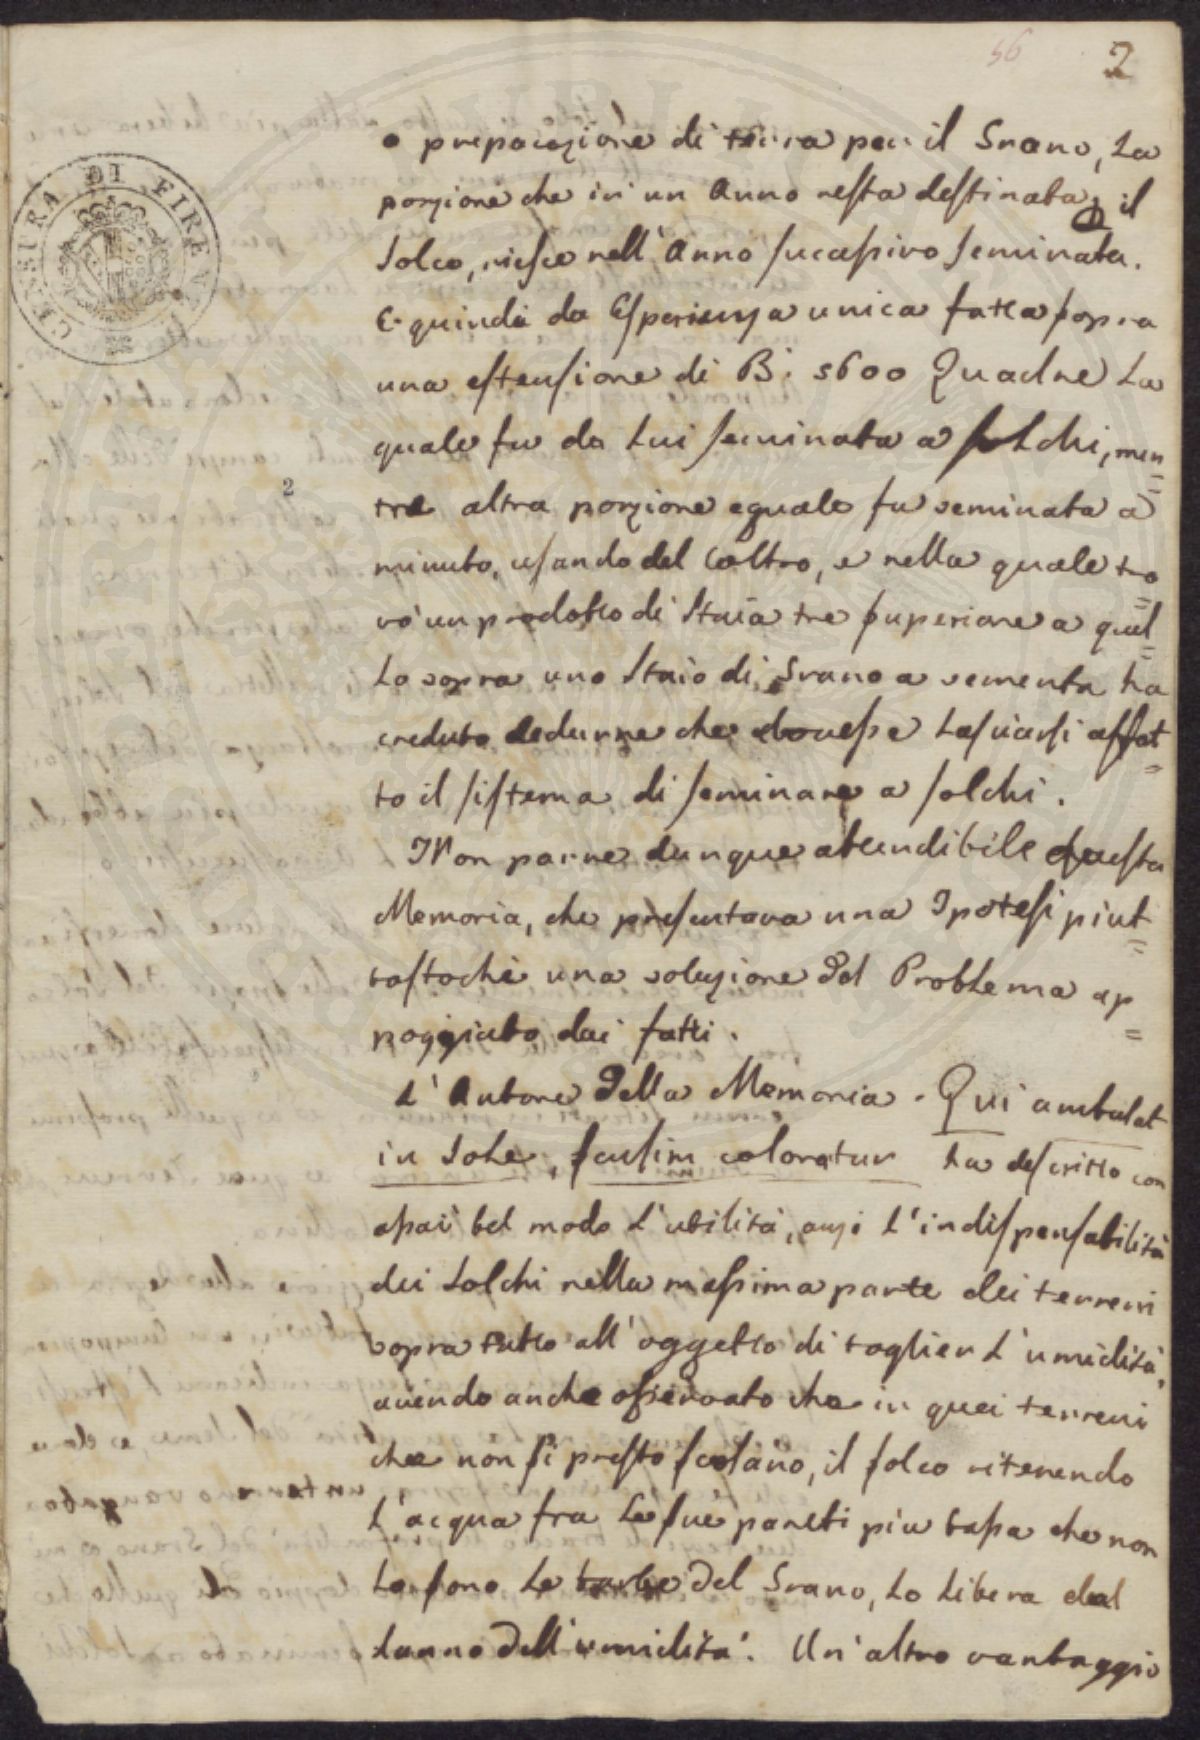 56 2
CENSURA DI FIRENZE
o preparazione di terra per il Grano, La
porzione che in un Anno resta destinata il
Solco, riesce nell' Anno sucassivo seminata.
E quindi da Esperienza unica fatta sopra
una estensione di B: 5600 Quadre La
quale fu da Lui seminata a solchi, men=
tre altra porzione eguale fu seminata a
minuto, usando del Coltro, e nella quale tro=
vò un prodotto di Staia tre superiore a quel=
Lo sopra uno Staio di Grano a sementa ha
creduto dedurne che dovesse Lasciarsi affat=
to il sistema di seminare a solchi.
Non parne dunque atendibile questa
Memoria, che presentava una Ipotesi piut=
tostochè una soluzione del Problema ap=
poggiato dai fatti.
L' Autore della Memoria. Qui ambulat
in Sole, sensim coloratur ha descritto con
assai bel modo L' utilità, anzi L' indispensabilità
dei Solchi nella massima parte dei terreni
sopra tutto all' oggetto di toglier L' umidità,
avendo anche osservato che in quei terreni
che non si presto scolano, il solco ritenendo
L' acqua fra Le sue pareti piu basse che non
Lo sono Le barbe del Grano, Lo Libera dal
danno dell' umidità. Un' altro vantaggio
2